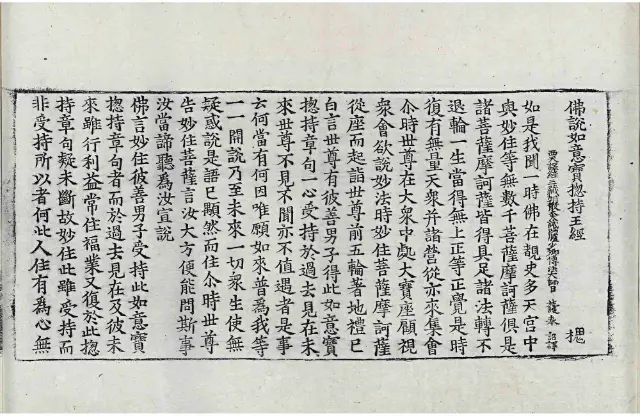 佛說如意寶揔持王經 槐
西天譯經三藏朝奉大夫試光祿卿傳法大師臣施護奉 詔譯
如是我聞一時佛在覩史多天宫中
與妙住等無數千菩薩摩訶薩俱是
諸菩薩摩訶薩皆得具足諸法轉不
退輪一生當得無上正等正覺是時
復有無量天衆并諸營從亦來集會
尒時世尊在大衆中處大寶座顧視
衆會欲說妙法時妙住菩薩摩訶薩
從座而起詣世尊前五輪著地禮已
白言世尊有彼善男子得此如意寶
揔持章句一心受持於過去見在未
來世尊不見不聞亦不值遇者是事
云何當有何因唯願如來普爲我等
一一開說乃至未來一切衆生使無
疑惑說是語已顯然而住尒時世尊
告妙住菩薩言汝大方便能問斯事
汝當諦聽爲汝宣說
佛言妙住彼善男子受持此如意寶
揔持章句者而於過去見在及彼未
來雖行利益常住福業又復於此揔
持章句疑未斷故妙住此雖受持而
非受持所以者何此人住有爲心無